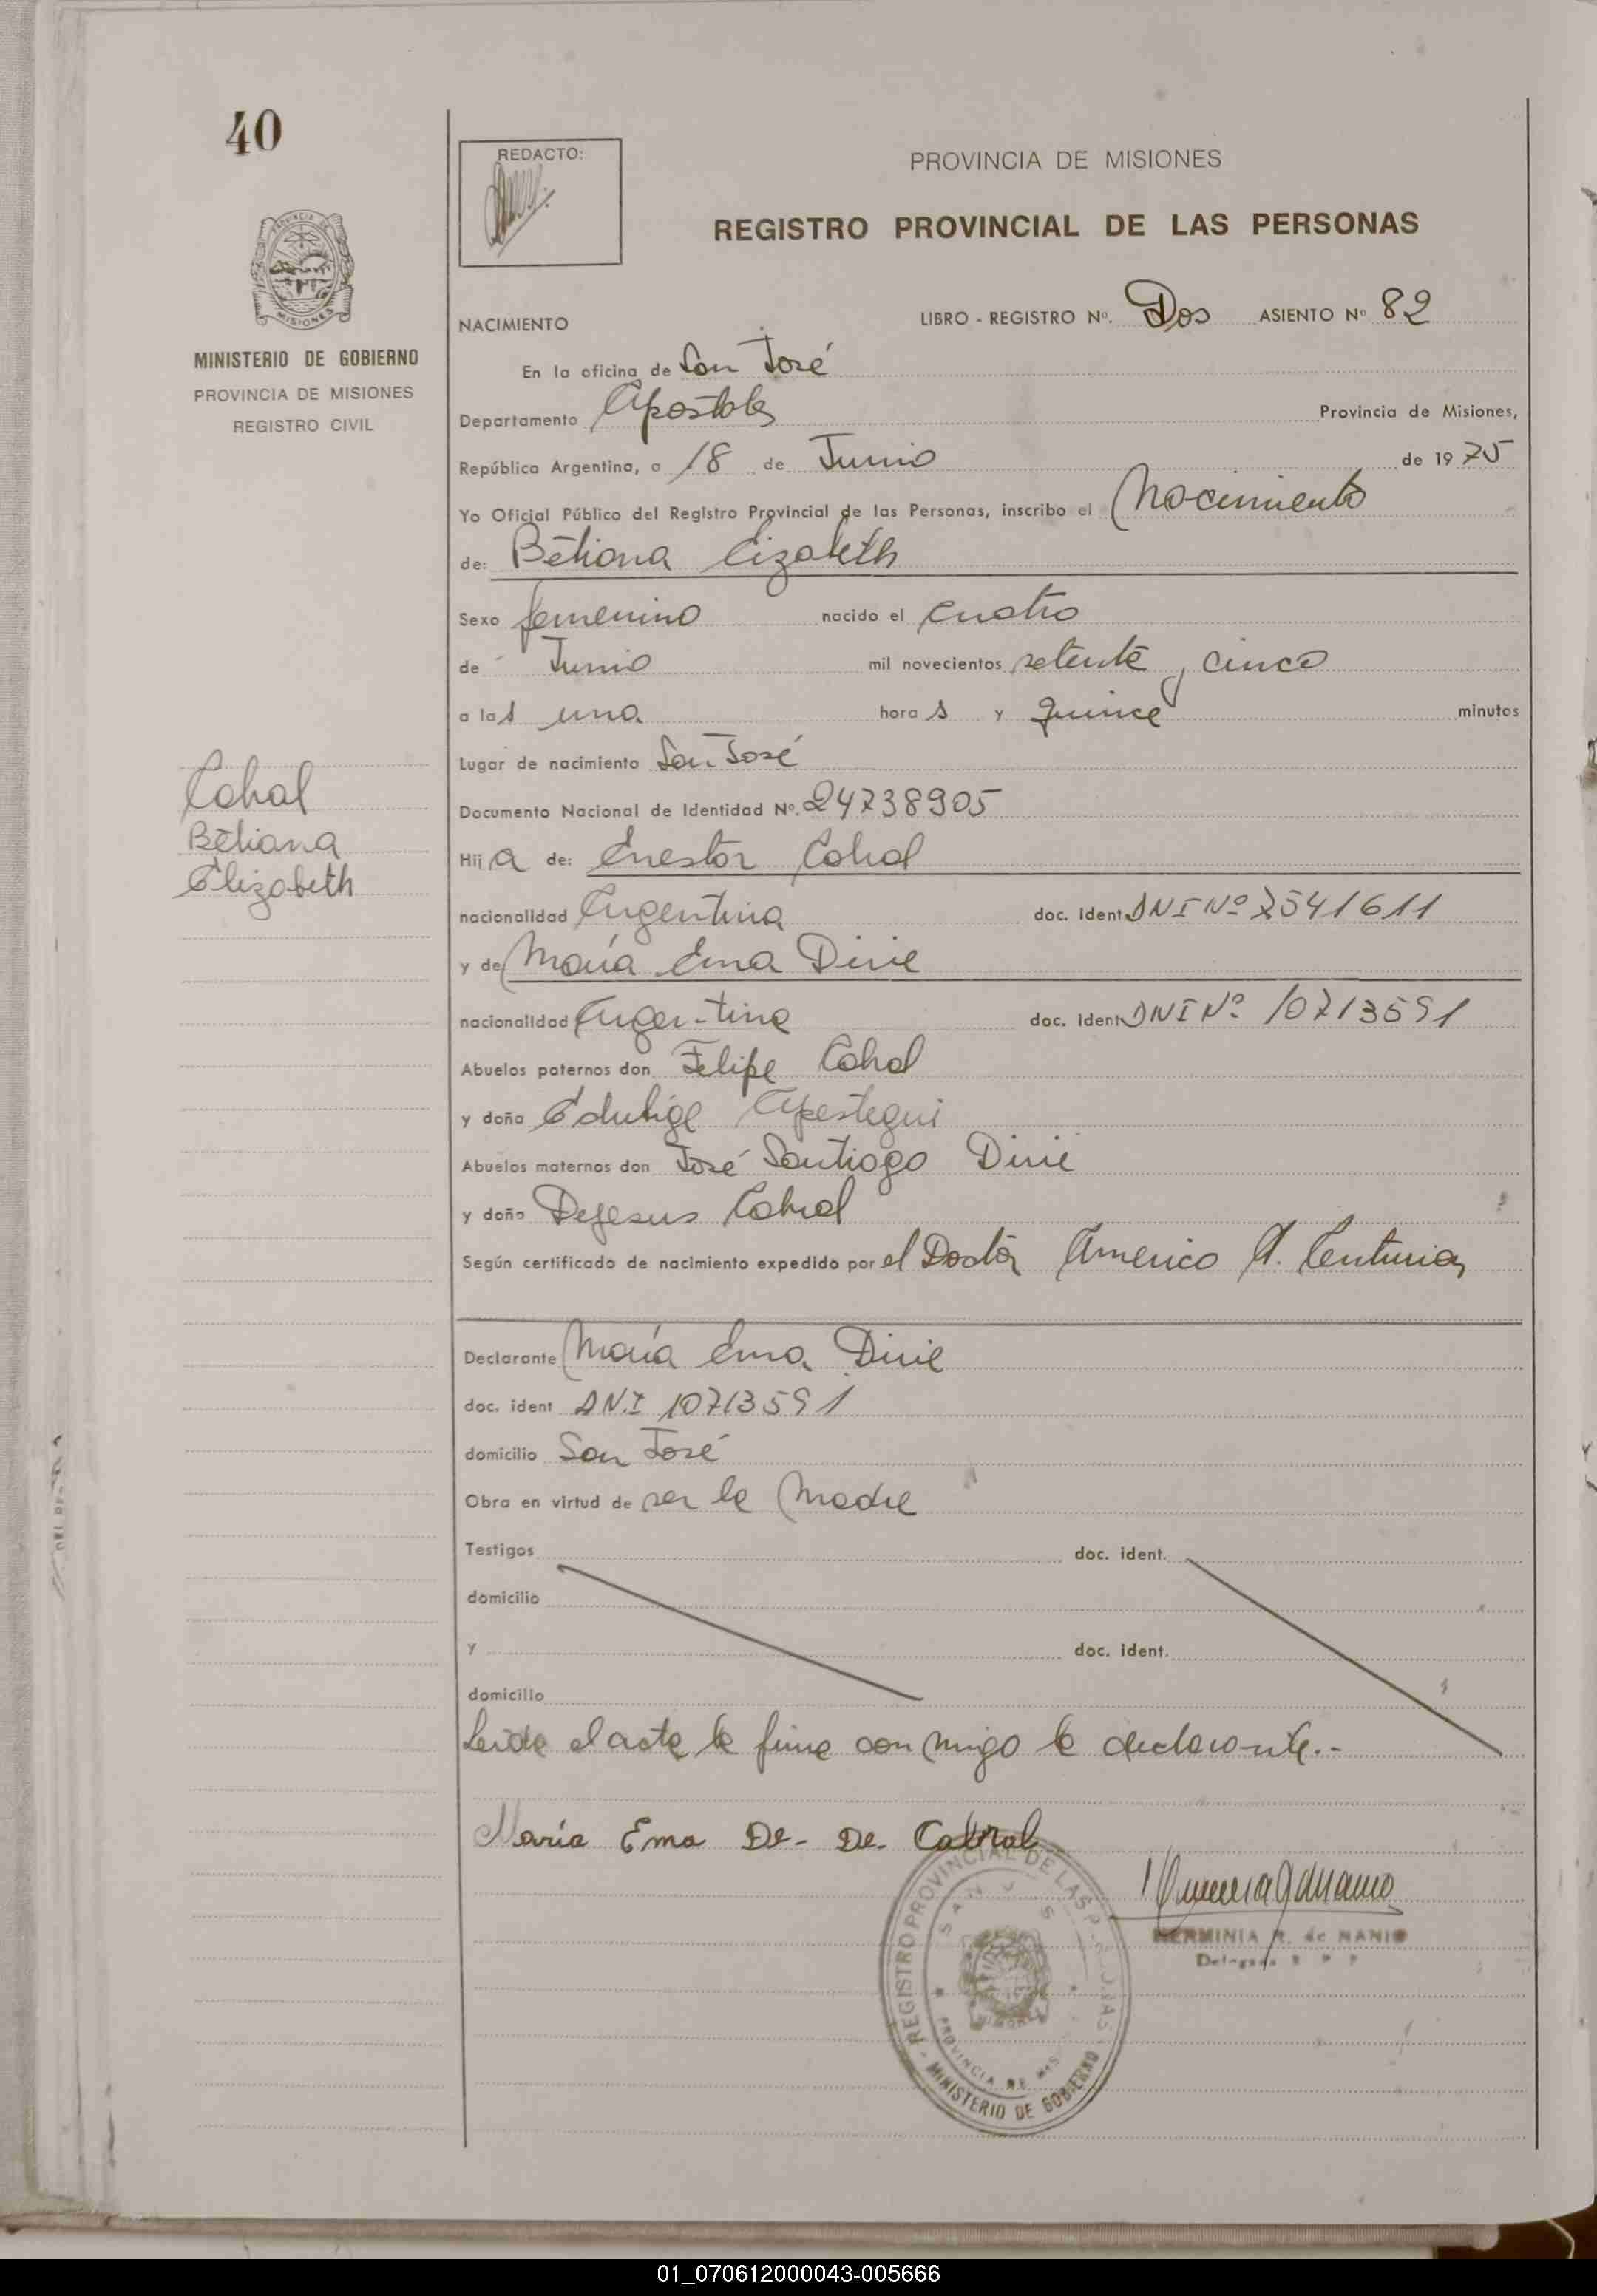 40
REDACTO:
PROVINCIA DE MISIONES
REGISTRO PROVINCIAL DE LAS PERSONAS
MISIONES
MINISTERIO DE GOBIERNO
PROVINCIA DE MISIONES
REGISTRO CIVIL
NACIMIENTO
LIBRO - REGISTRO Nº. Dos ASIENTO Nº 82
En la oficina de San José
Departamento Apostoles Provincia de Misiones,
República Argentina, a 18 de Junio de 1975
Yo Oficial Público del Registro Provincial de las Personas, inscribo el Nacimiento
de: Betiana Elizabeth
Sexo femenino nacido el cuatro
de Junio mil novecientos setenta y cinco
a las una horas y quince minutos
Lugar de nacimiento San José
Cabral
Betiana
Elizabeth
Documento Nacional de Identidad Nº. 24738905
Hija de: Enestor Cabral
nacionalidad Argentina doc. Ident DNI Nº 7541611
y de María Ema
nacionalidad Argentina doc. Ident DNI Nº 10713591
Abuelos paternos don Felipe Cabral
y doña Eduhige Apestegui
Abuelos maternos don José Santiago
y doña Dejesus Cabral
Según certificado de nacimiento expedido por el Doctor Americo A. Centurion
Declarante María Ema
doc. ident DN.I 10713591
domicilio San José
Obra en virtud de ser la Madre
Testigos doc. ident.
domicilio
y doc. ident.
domicilio
Leida el acta la firma con migo la declarante.-
María Ema De- De- Cabral
REGISTRO PROVINCIAL DE LAS PERSONAS
SAN JOSE
PROVINCIA DE MIS
MINISTERIO DE GOBIERNO
HERMINIA R. de NANIO
01_070612000043-005666